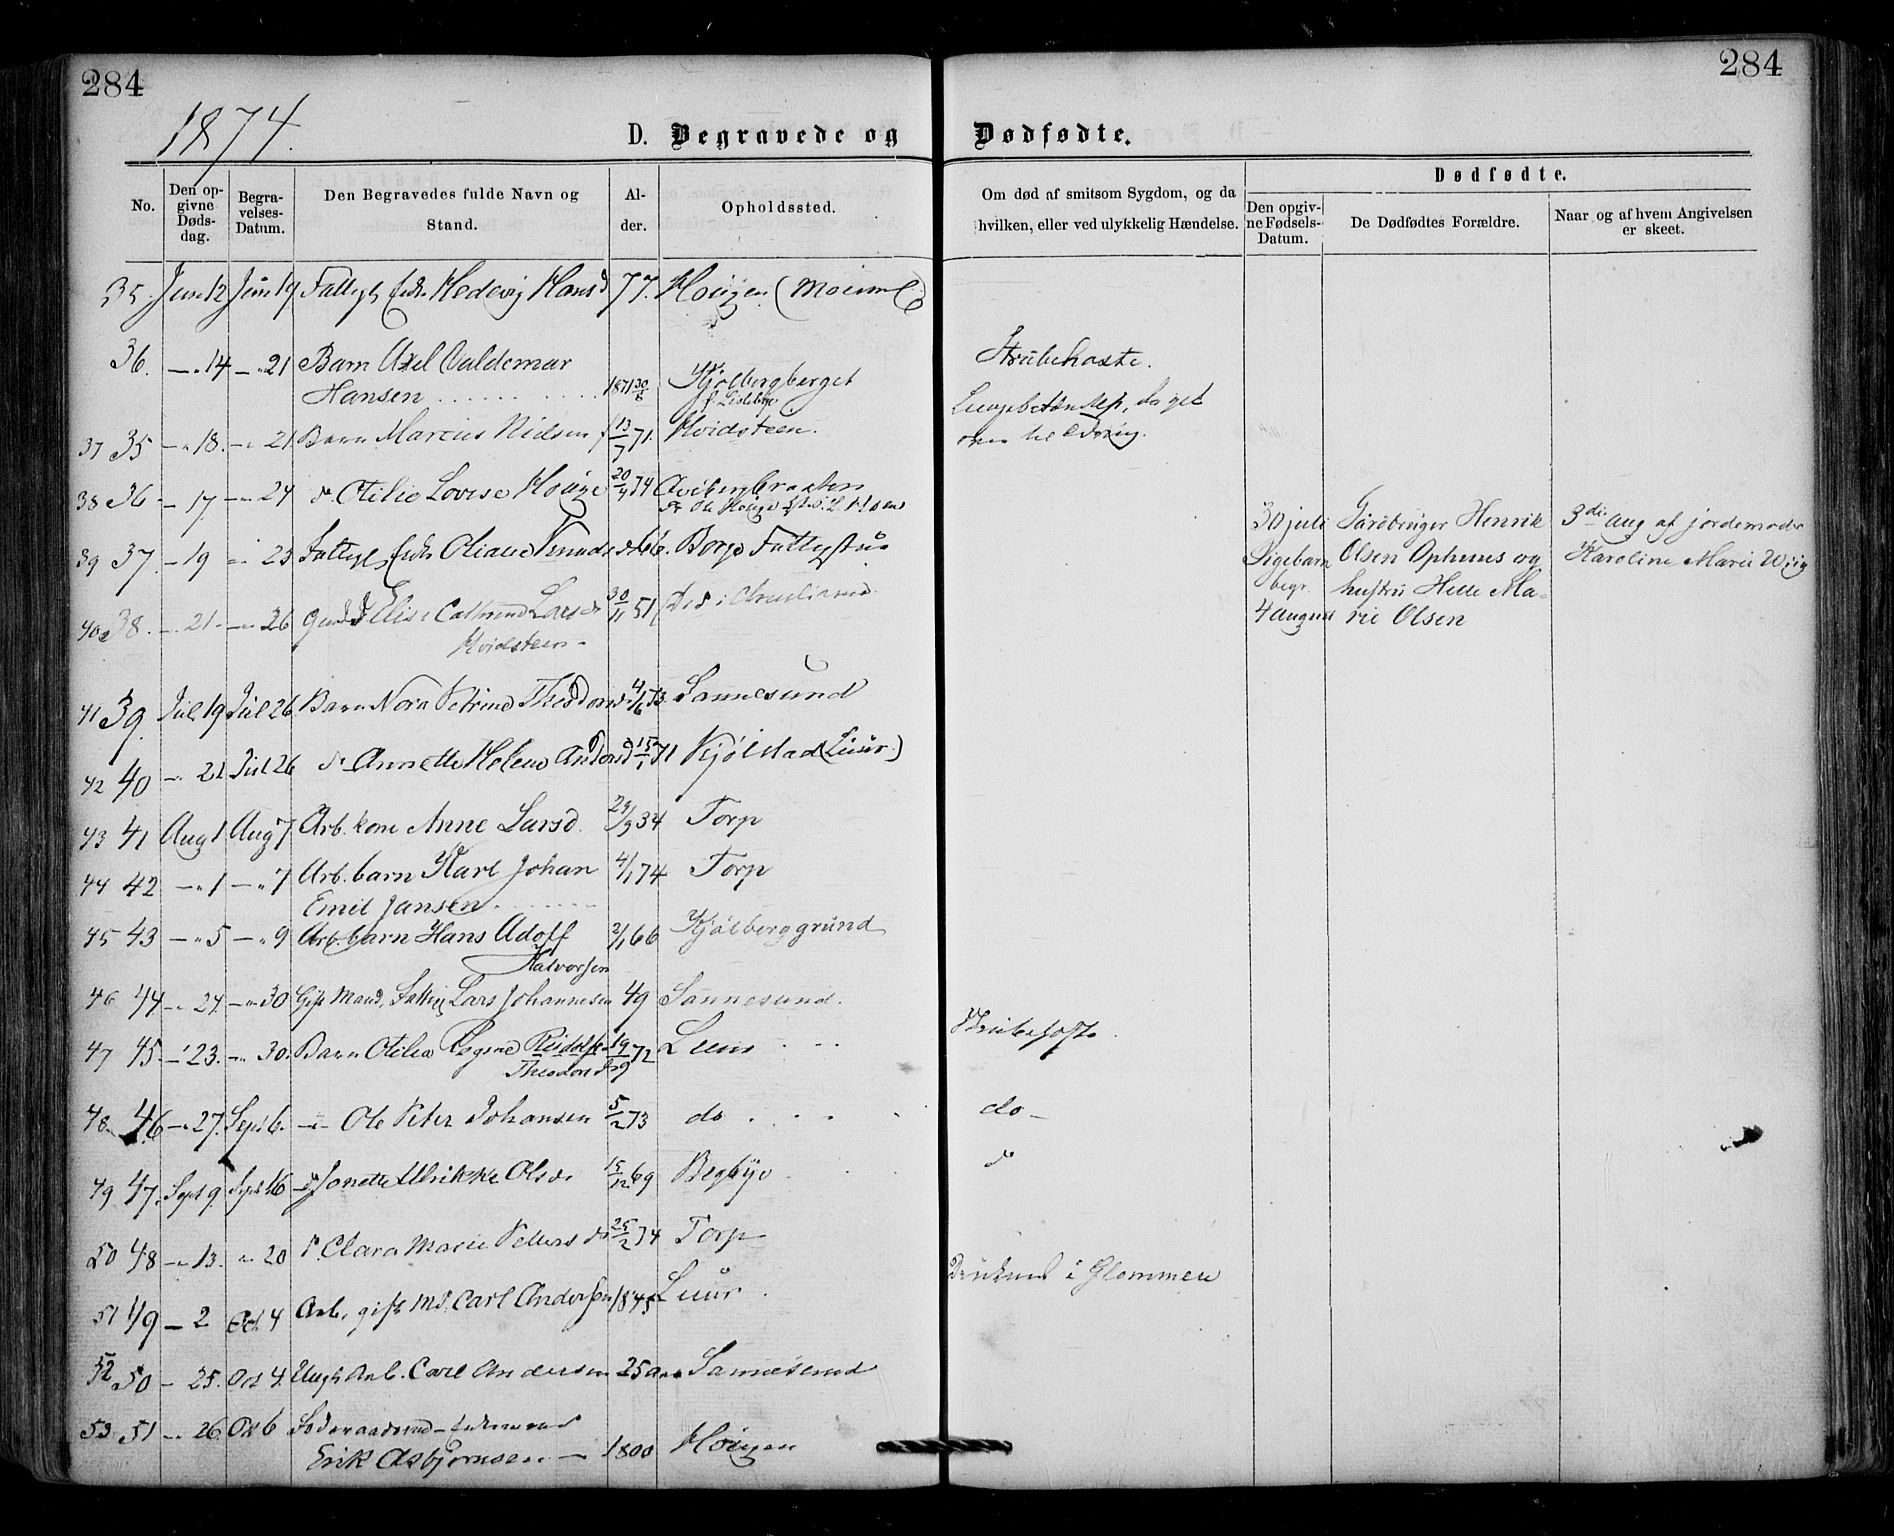 284
284
1874.
D. Begravede og Dødfødte.
No.
Den opgivne Dødsdag.
Begravelses-Datum.
Den Begravedes fulde Navn og Stand.
Alder.
Opholdssted.
Om død af smitsom Sygdom, og da hvilken, eller ved ulykkelig Hændelse.
Dødfødte.
Den opgivne Fødsels-Datum.
De Dødfødtes Forældre.
Naar og af hvem Angivelsen er skeet.
35. Juni 12 Juni 19 Hedevig Hansd 77. Hougen
36. — " 14 — " 21 Barn Axel Valdemar
Hansen . . . . . . . . . . 1871 30/8 Kjølbergberget
Strubehoste.
37 35 — " 18. — " 21 Barn Marcius Nielsen f 13/7 71. Hvidsteen.
38 36 — 17. — " 24 do. Otilie Lovise Houge 20/4 74
39 37. — 19 — " 23 Knudsd 66. Borge Fattighus
40 38. — " 21. — " 26 Elise Cathrine Larsd 30/11 51
Hvidsteen.
41 39. Jul. 19 Jul 26 Barn Nora Petrine 4/6 73. Sannesund
42 40 — " 21 Jul 26 do Annette Helene 15/1 71 Kjølstad (Liuur.)
43 41 Aug 1 Aug 7 Arb. kone Anne Larsd. 29/9 34 Torp
44 42 — " 1 — " 7 Arb. barn Karl Johan 4/1 74 Torp
Emil Jansen . . . . . .
45 43 — " 5 — " 9 Arb. barn Hans Adolf 2/1 66 Kjølberggrund
Halvorsen
46 44 — " 24. — " 30 Gift Mand, Lars Johannesen 49 Sannesund.
47 45. — " 23. — " 30. Barn Otilia 19/9 72
48 46 — " 27. Sept 6. — " — Ole Peter Johansen 5/2 73 do . . . .
do —
49 47. Sept 9. Sept 16 do Jonette Ulrikke Olsd. 15/12 69 Begbye
do
50 48 — " 13. — " 20 do. Clara Marie Petters dr 25/2 74 Torp
51 49 — 2 Oct 4 Arb. gift Md. Carl Andersen 1845 Liuur.
i Glommen
52 50 — 25. Oct 4. Ungk Arb. Carl Andersen 25 aar Sannesund
53 51 — " 26. Oct 6
Erik Asbjørnsen — 1800 Hougen
30 juli Gårdbruger Henrik 3die aug af jordemoder
Pigebarn Olsen Ophuus og Karoline Marie Wiig
begr. hustru Helle Ma-
4 august rie Olsen